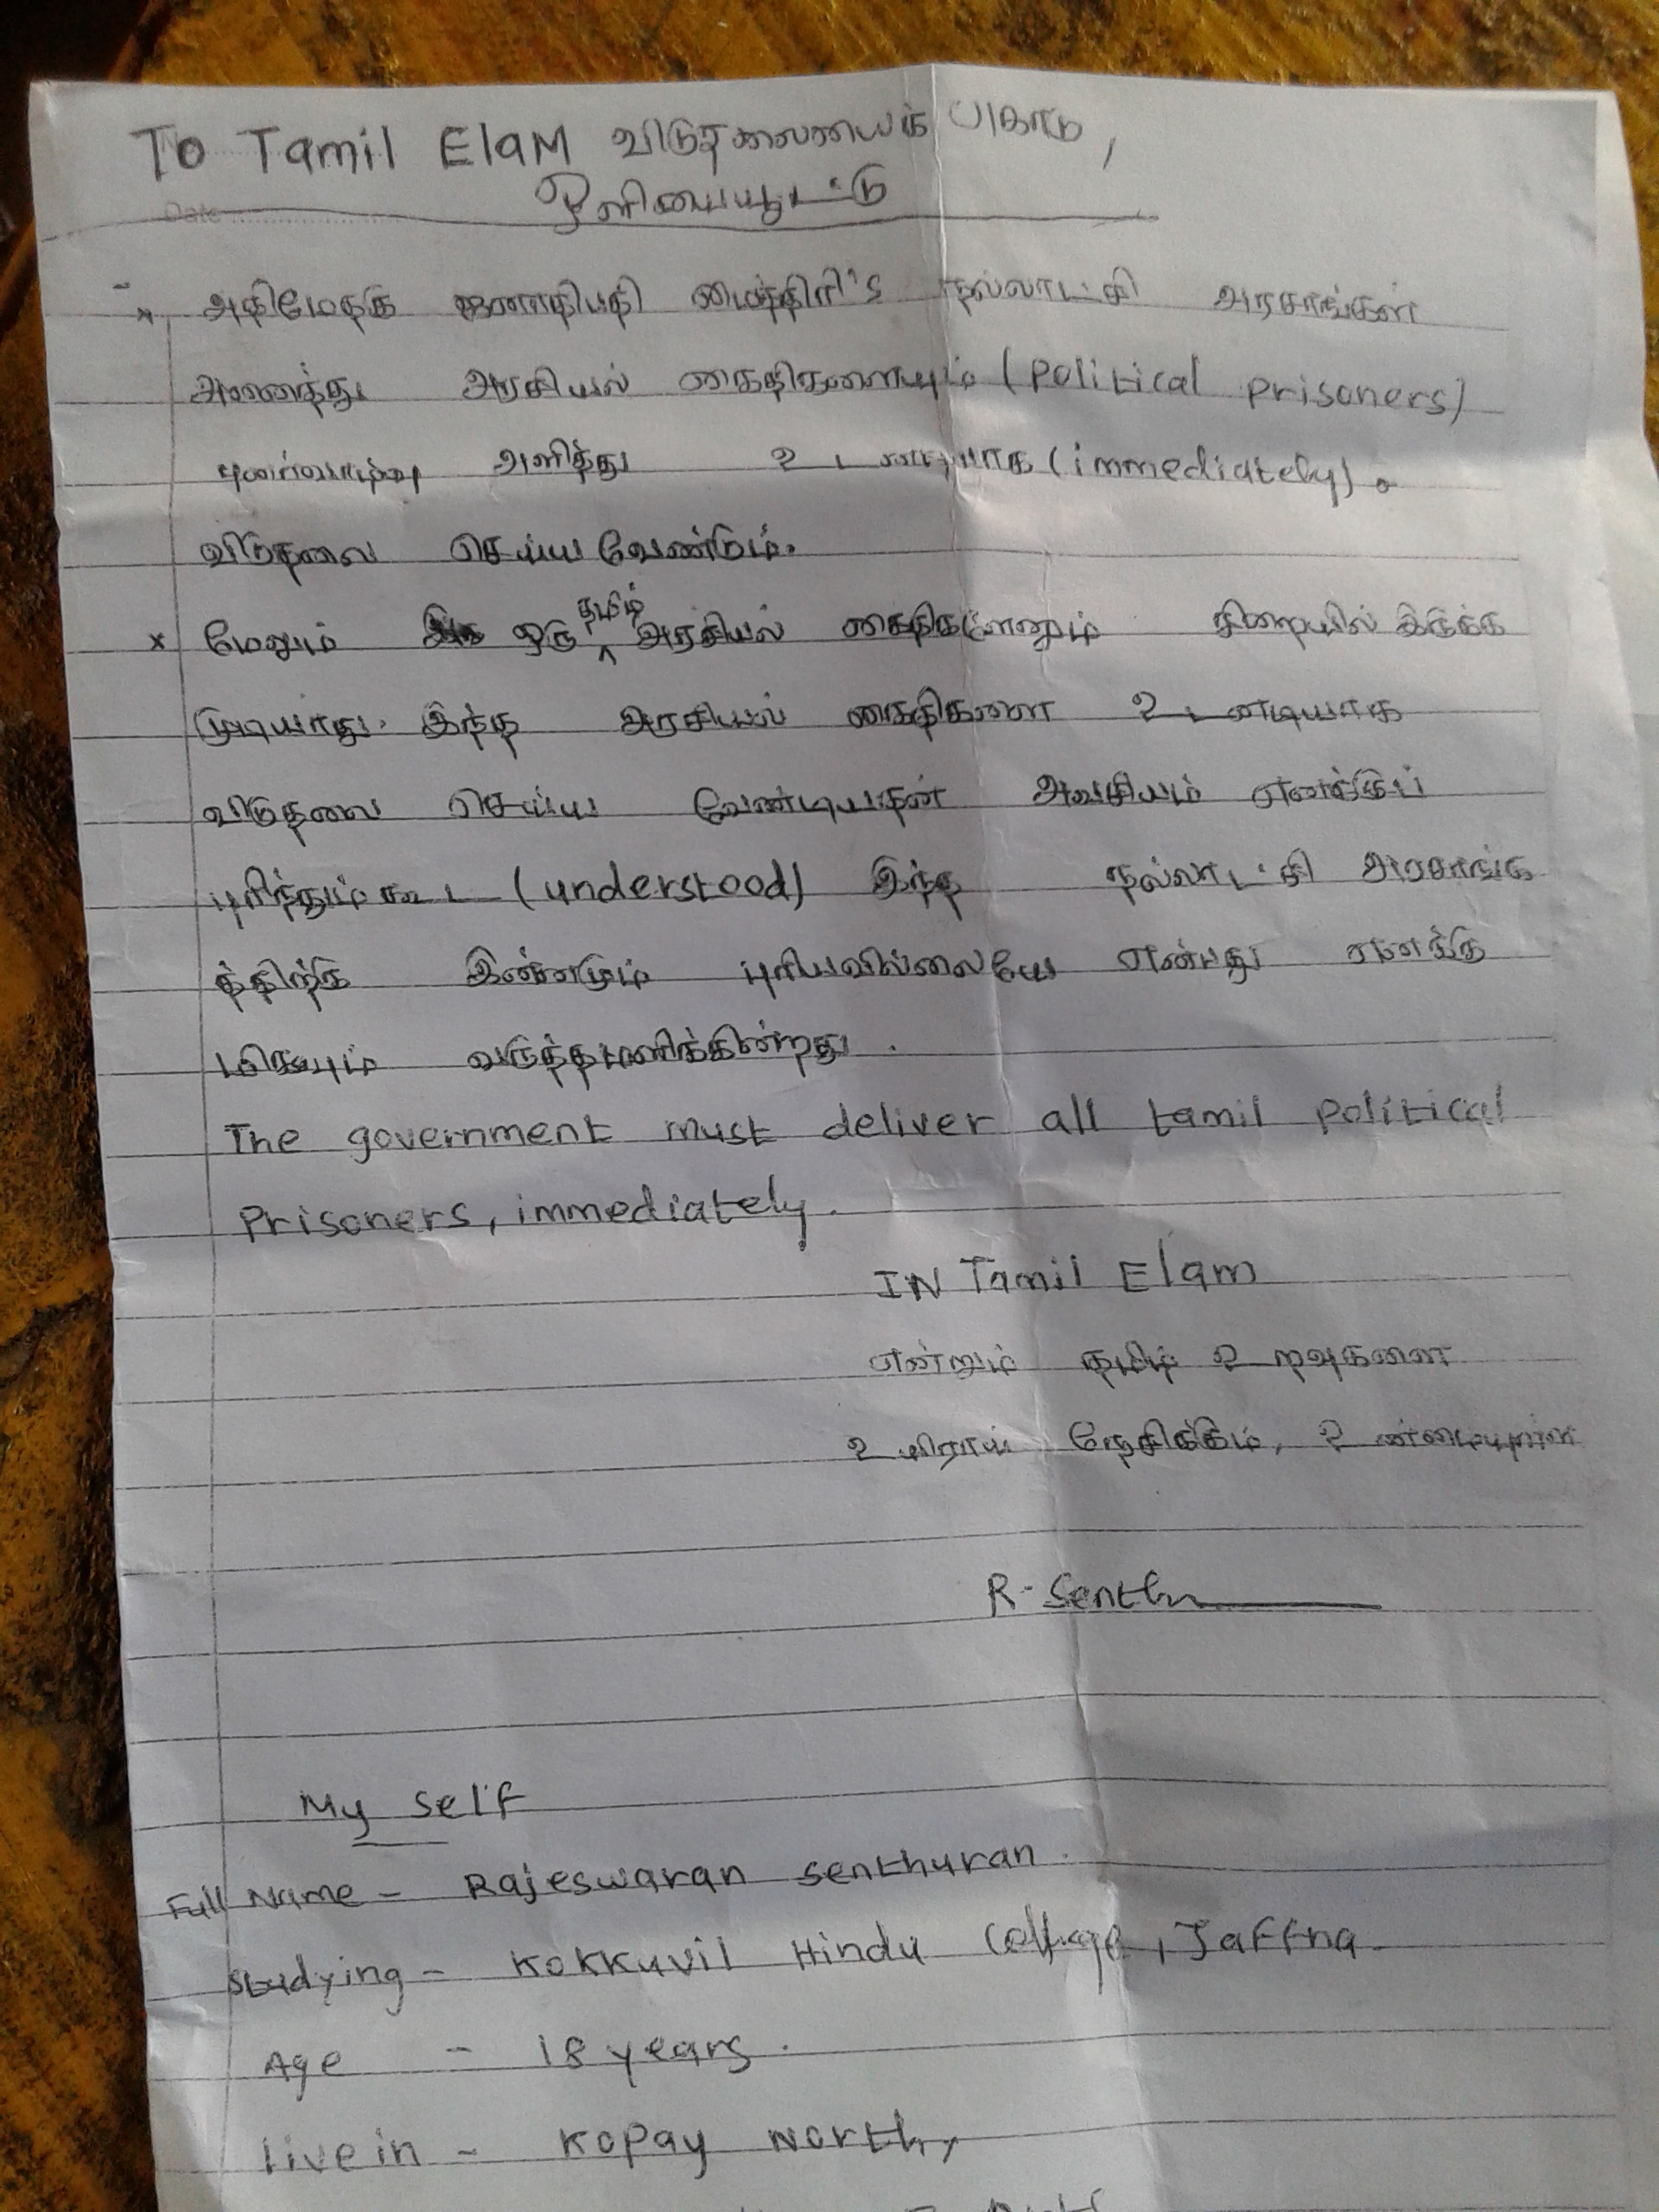 To Tamil ElaM விடுதலையைக் கொடு,
Date
ஒளியையூட்டு
அதிமேதகு ஜனாதிபதி மைத்திரி's நல்லாட்சி அரசாங்கள்
அனைத்து அரசியல் கைதிகளையும் (political prisoners)
புனர்வாழ்வு அளித்து உடனடியாக (immediately).
விடுதலை செய்யவேண்டும்.
x மேலும் ஒரு தமிழ் அரசியல் கைதிகளேனும் சிறையில் இருக்க
முடியாது. இந்த அரசியல் கைதிகளை உடனடியாக
விடுதலை செய்ய வேண்டியதன் அவசியம் எனக்குப்
புரிந்தும்கூட (understood) இந்த நல்லாட்சி அரசாங்க
த்திற்கு இன்னமும் புரியவில்லையே என்பது எனக்கு
மிகவும் வருத்தமளிக்கின்றது.
The government must deliver all tamil political
prisoners, immediately.
IN Tamil Elam
என்றும் தமிழ் உறவுகளை
உயிராய் நேசிக்கும், உண்மையுள்ள
R. Senthu
My self
Full Name - Rajeswaran senthuran.
studying - Kokkuvil Hindu College, Jaffna.
Age - 18 years.
live in - Kopay North,